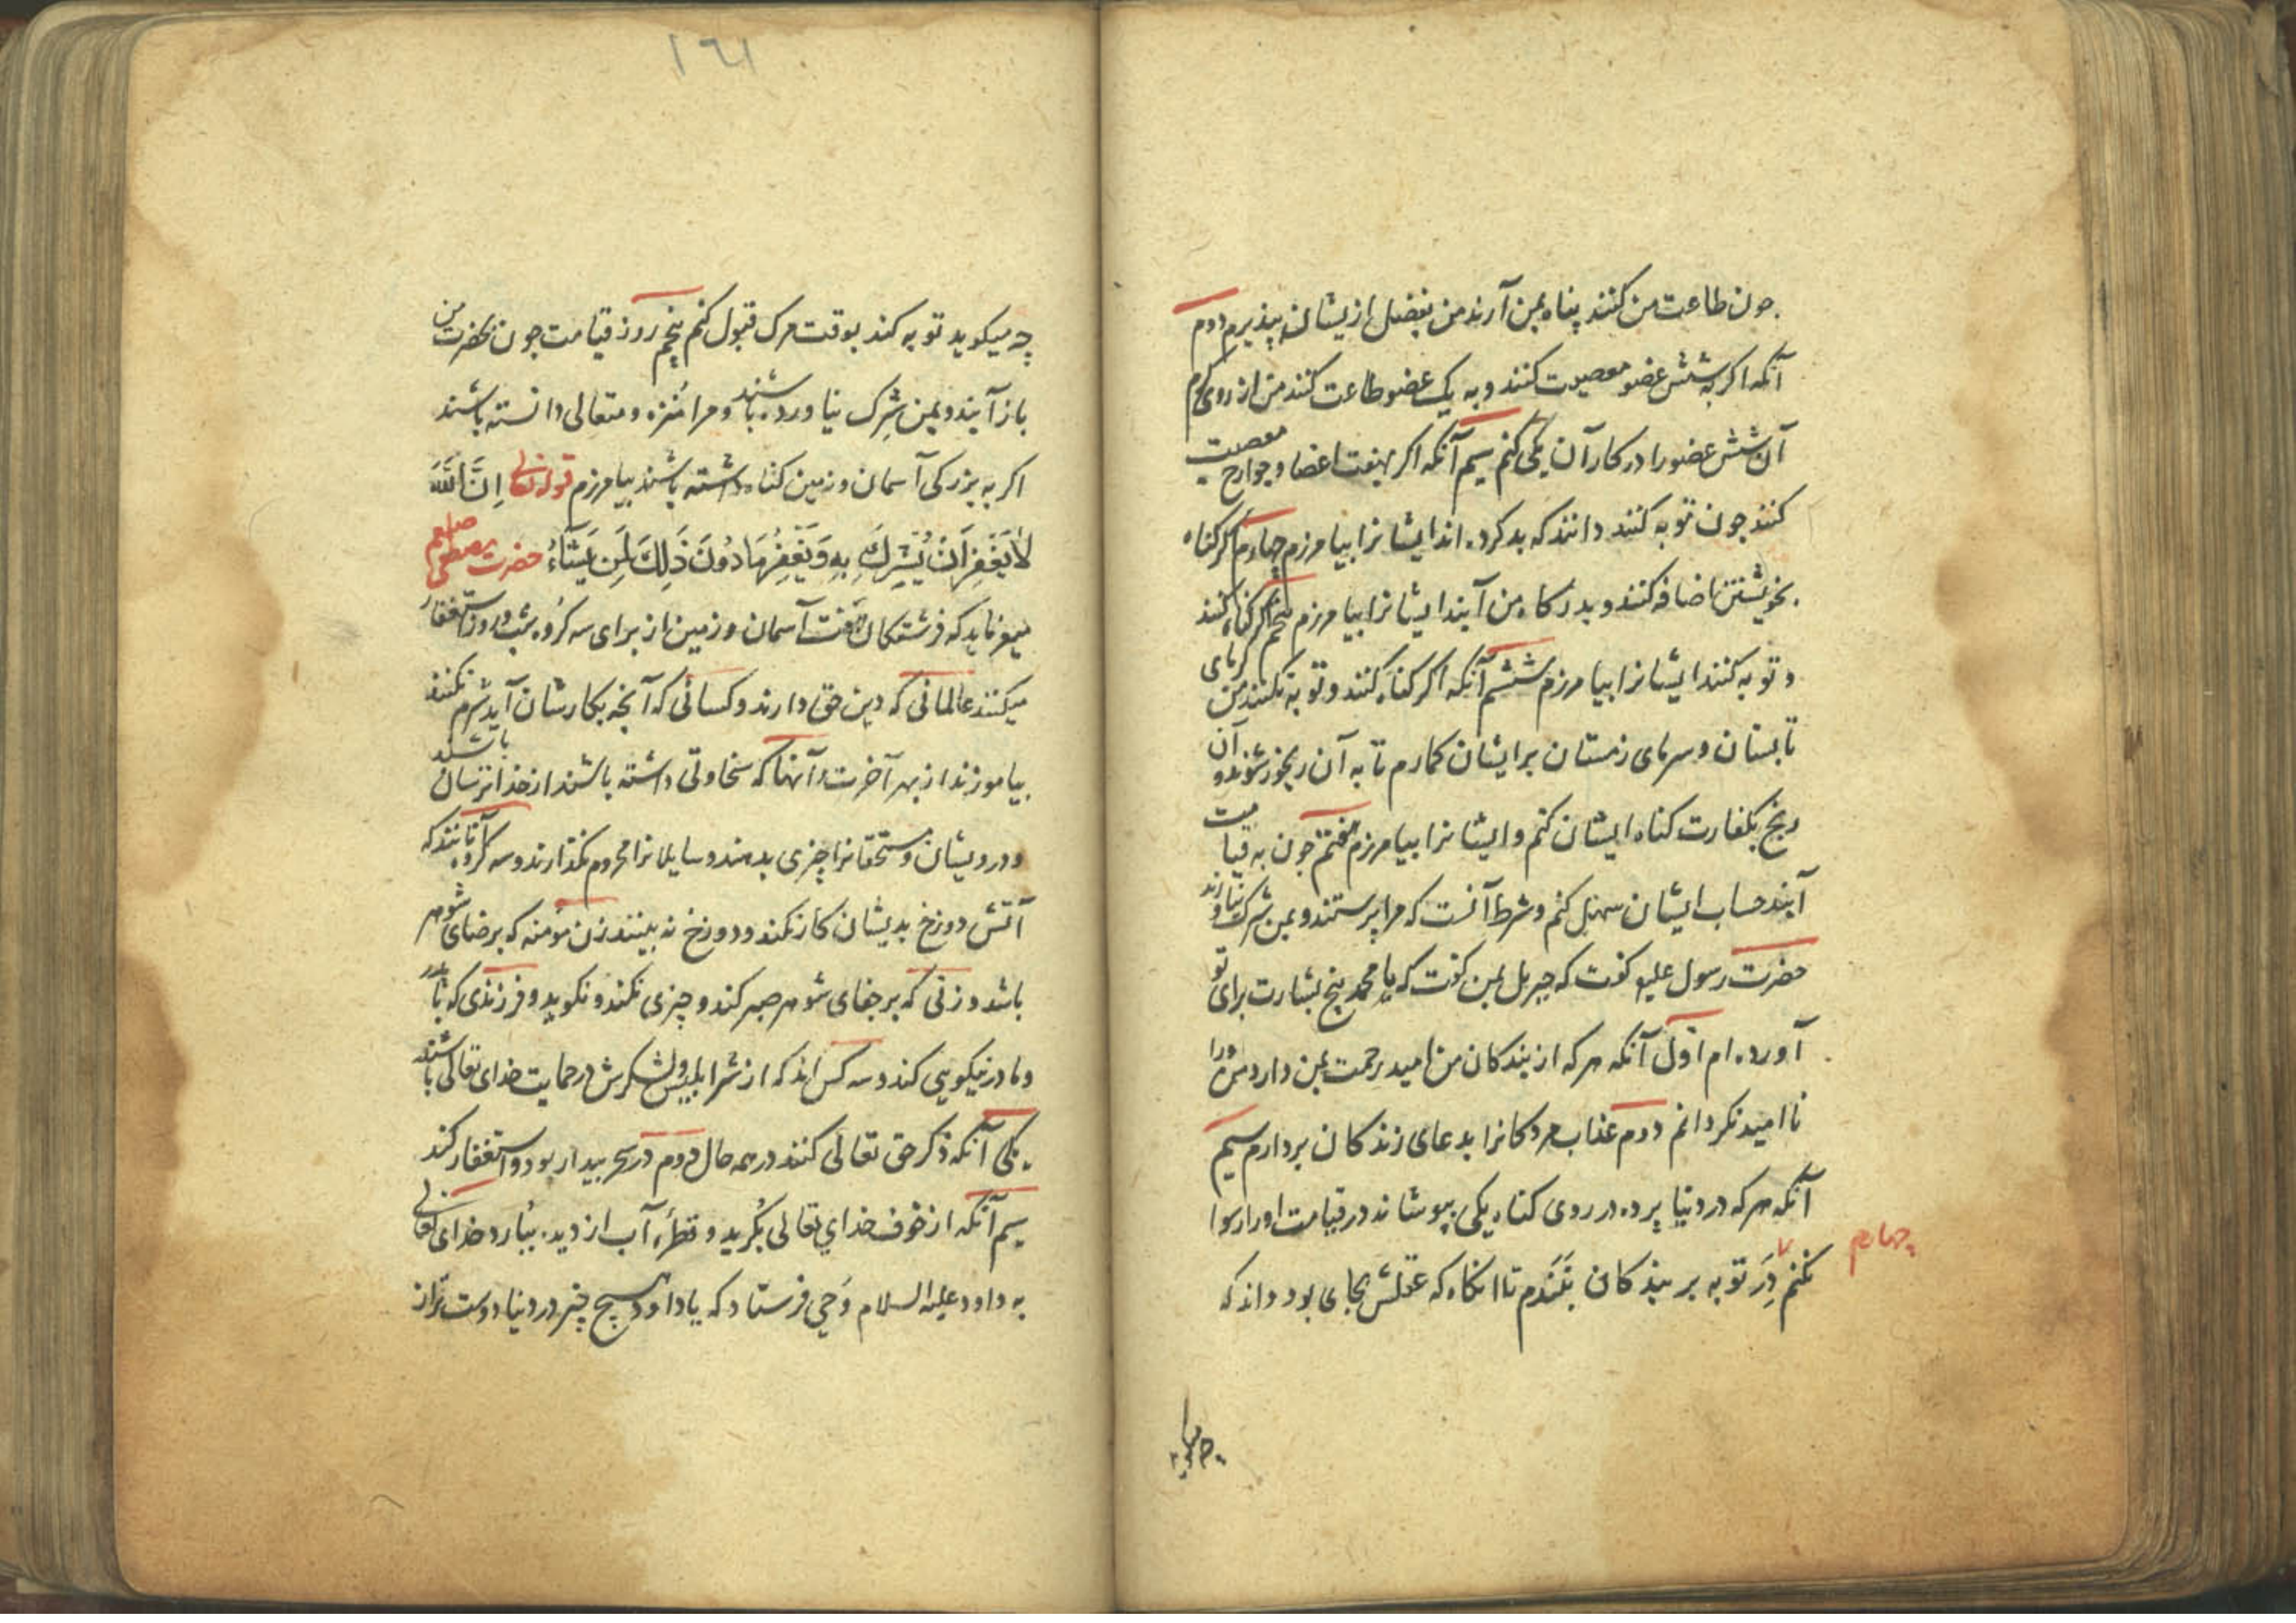 جون طاعت من کنند پناه بمن آرند من بفضل ازیشان بپذیرم دوم
آنکه اکر به شش عضو معصیت کنند و به یک عضو طاعت کنند من از روی کرم
آن شش عضو را در کار آن یکی کنم سیم آنکه اکر بهفت اعضا و جوارح معصیت
کنند جون توبه کنند دانند که بد کرده اند ایشانرا بیامرزم چهارم اکر کناه
بخویشتن اضافه کنند و بدرکاه من آیند ایشانرا بیامرزم پنجم اکر کناه کنند
و توبه کنند ایشانرا بیامرزم ششم آنکه اکر کناه کنند و توبه نکنند من کرمای
تابستان و سرمای زمستان برایشان کمارم تا به آن رنجور شوند و آن
رنج بکفارت کناه ایشان کنم و ایشانرا بیامرزم هفتم جون به قیامت
آیند حساب ایشان سهل کنم و شرط آنست که مرا پرستند و بمن شرک نیاورند
حضرت رسول علیه کفت که جبریل بمن کفت که یا محمد پنج بشارت برای تو
آورده ام اول آنکه هر که از بندکان من امید رحمت بمن دارد من ورا
نا امید نکردانم دوم عذاب مردکانرا بدعای زندکان بردارم سیم
آنکه هر که در دنیا پرده در روی کناه یکی بپوشاند در قیامت اورا رسوا
نکنم در توبه بر بندکان نبندم تا انکاه که عقلش بجای بود داند که
چهارم
چه میکوید
۱۶۱
چه میکوید توبه کند بوقت مرک قبول کنم پنجم روز قیامت جون بحضرت من
باز آیند و بمن شرک نیاورده باشند و مرا منزه و متعالی دانسته باشند
اکر به بزرکی آسمان و زمین کناه داشته باشند بیامرزم قوله تعالی اِنَّ اللّٰهَ
لاٰ یَغْفِرُ اَنْ یُشْرِكَ بِهِ وَیَغْفِرُ مَا دُونَ ذَلِكَ لِمَن یَشَآءُ حضرت مصطفی صلعم
میفرماید که فرشتکان هفت آسمان و زمین از برای سه کروه شب و روز استغفار
میکنند عالمانی که دین حق دارند و کسانی که آنجه بکارشان آید شرم نکنند
بیاموزند از بهر آخرت و آنها که سخاوتی داشته باشند از خدا ترسان باشند
و درویشان و مستحقانرا چیزی بدهند و سایلانرا محروم نکذارند و سه کروه آنانند که
آتش دوزخ بدیشان کار نکند و دوزخ نه بینند زن مؤمنه که برضای شوهر
باشد و زنی که بر جفای شوهر صبر کند و چیزی نکند و نکوید و فرزندی که با پدر
و مادر نیکویی کند و سه کس اند که از شر ابلیس و لشکرش در حمایت خدای تعالی باشند
یکی آنکه ذکر حق تعالی کنند در همه حال دوم در سحر بیدار بود و استغفار کند
سیم آنکه از خوف خدای تعالی بکرید و قطرۀ آب از دیده ببارد خدای تعالی
به داود علیه السلام وحی فرستاد که یا داود هیچ چیز در دنیا دوست تر از